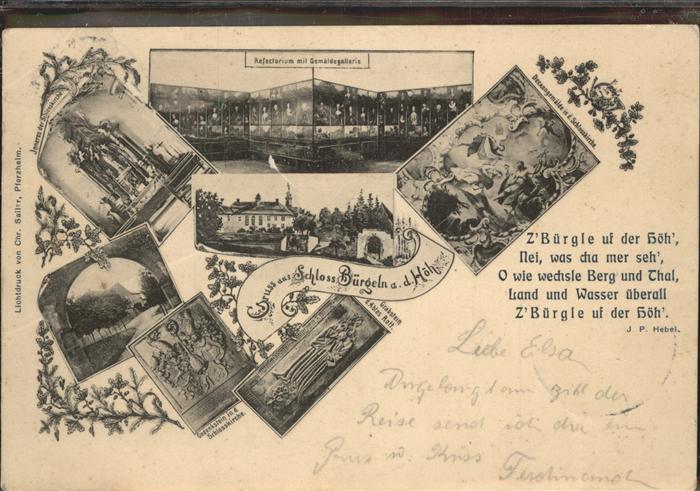 Refectorium mit Gemäldegallerie
Deckengemälde in d. Schlosskirche.
Inneres der Schlosskirche.
Lichtdruck von Chr. Saller, Pforzheim.
Gruss aus Schloss Bürgeln a. d. Höh'
Z'Bürgle uf der Höh',
Nei, was cha mer seh',
O wie wechsle Berg und Thal,
Land und Wasser überall
Z'Bürgle uf der Höh'.
J. P. Hebel.
Grabstein
d. Abtes
Gedenkstein in d.
Schlosskirche.
Liebe Elsa
Angelangt am Ziel der
Reise send ich dir ein
Gruss u. Kuss
Ferdinand